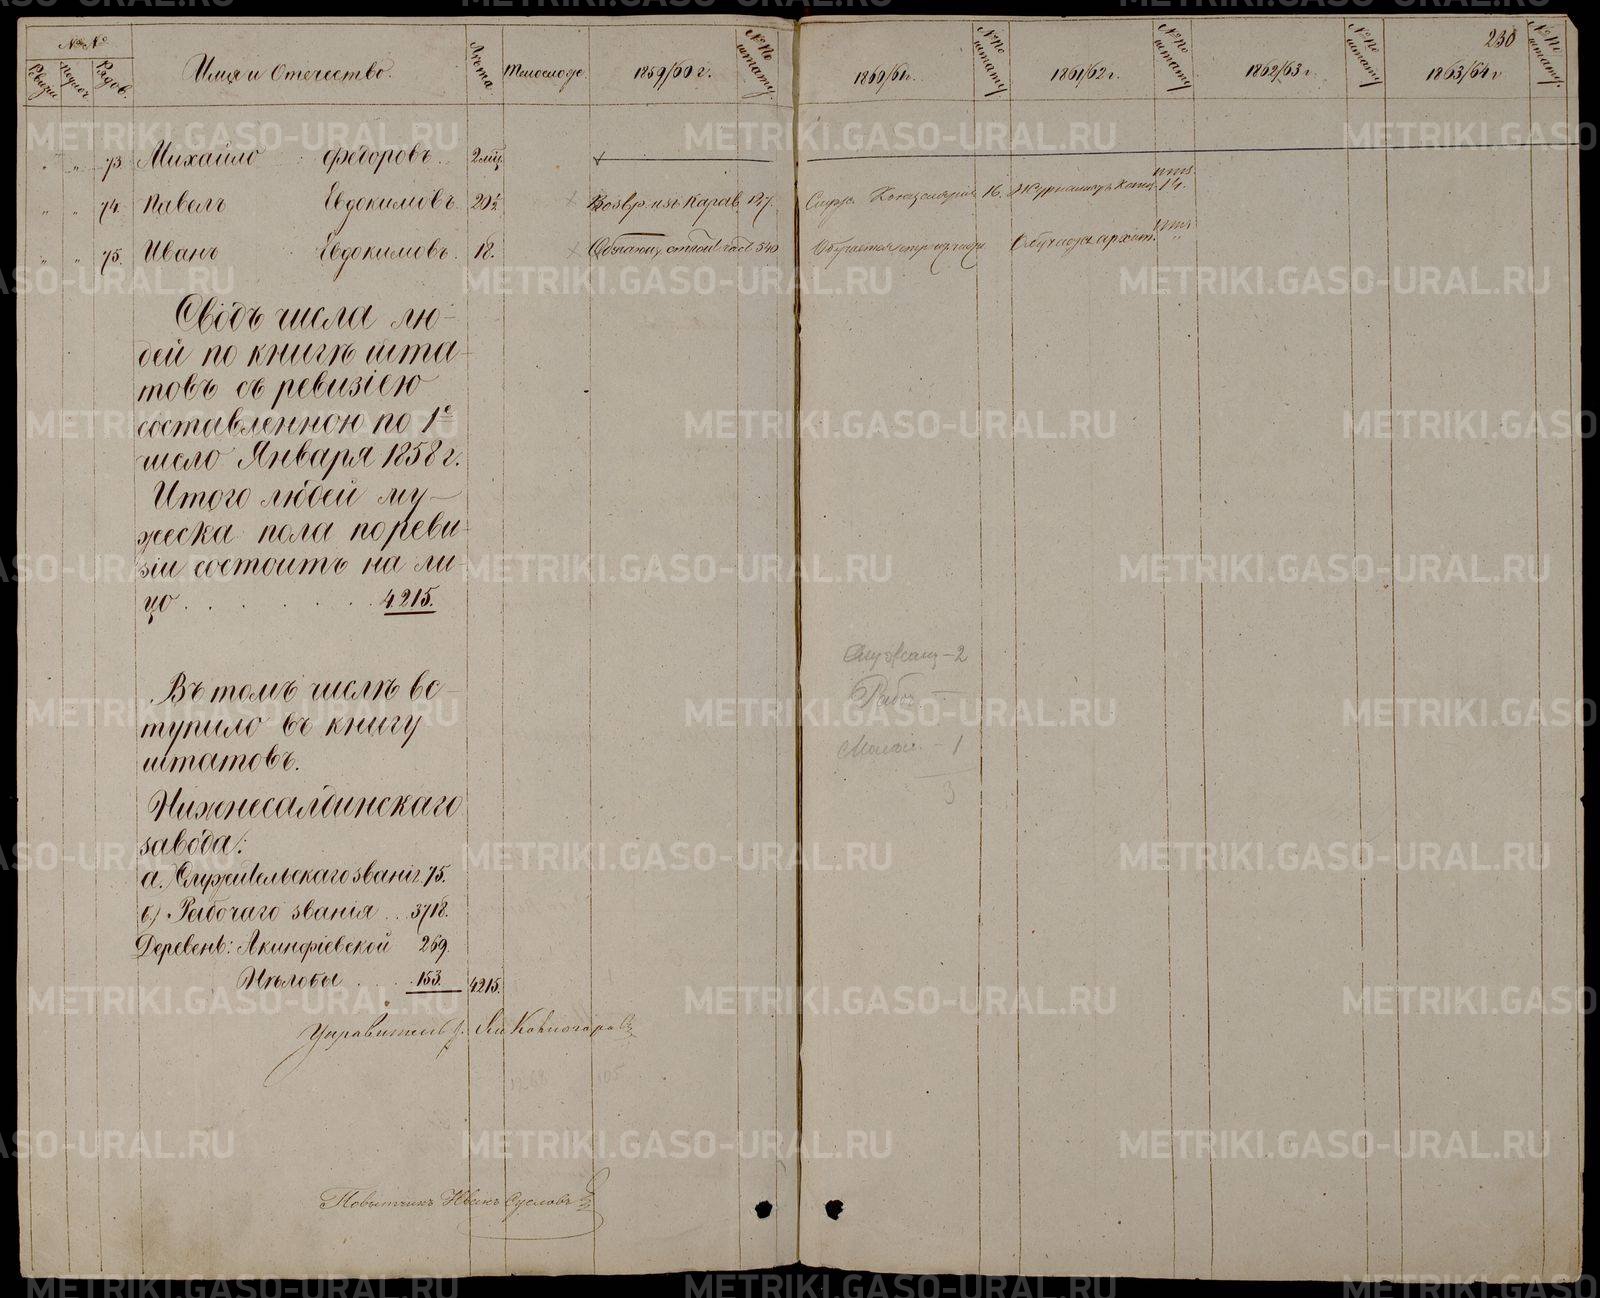 № №
Ревизи
Рядов.
Имя и Отечество.
Лѣта.
Тѣлослож.
1859/60 г.
№ по штату.
1860/61 г.
№ по штату
1861/62 г.
№ по штату
1862/63 г.
№ по штату
230
1863/64 г
№ по штату.
" " 73. Михайло Федоровъ. 2 мц.
" " 74. Павелъ Евдокимовъ 20½ Возвр. изъ Карав. 127. 16. 14.
" " 75. Иванъ Евдокимовъ. 18. 540
Сводъ числа лю-
дей по книгѣ шта-
товъ съ ревизіею
составленною по 1е
число Января 1858 г.
Итого людей му-
жеска пола по реви-
зіи состоитъ на ли-
цо . . . . . . . 4215.
Въ томъ числѣ вс-
тупило въ книгу
штатовъ.
Нижнесалдинскаго
завода:
а.) Служительскаго званія 75.
б.) Рабочаго званія . . 3718.
Деревень: Акинфіевской 269.
Нѣлобы . . . . 153. 4215.
Служащ - 2
Рабоч. —
- 1
3
Управитель
Повытчикъ Иванъ Сусловъ
METRIKI.GASO-URAL.RU